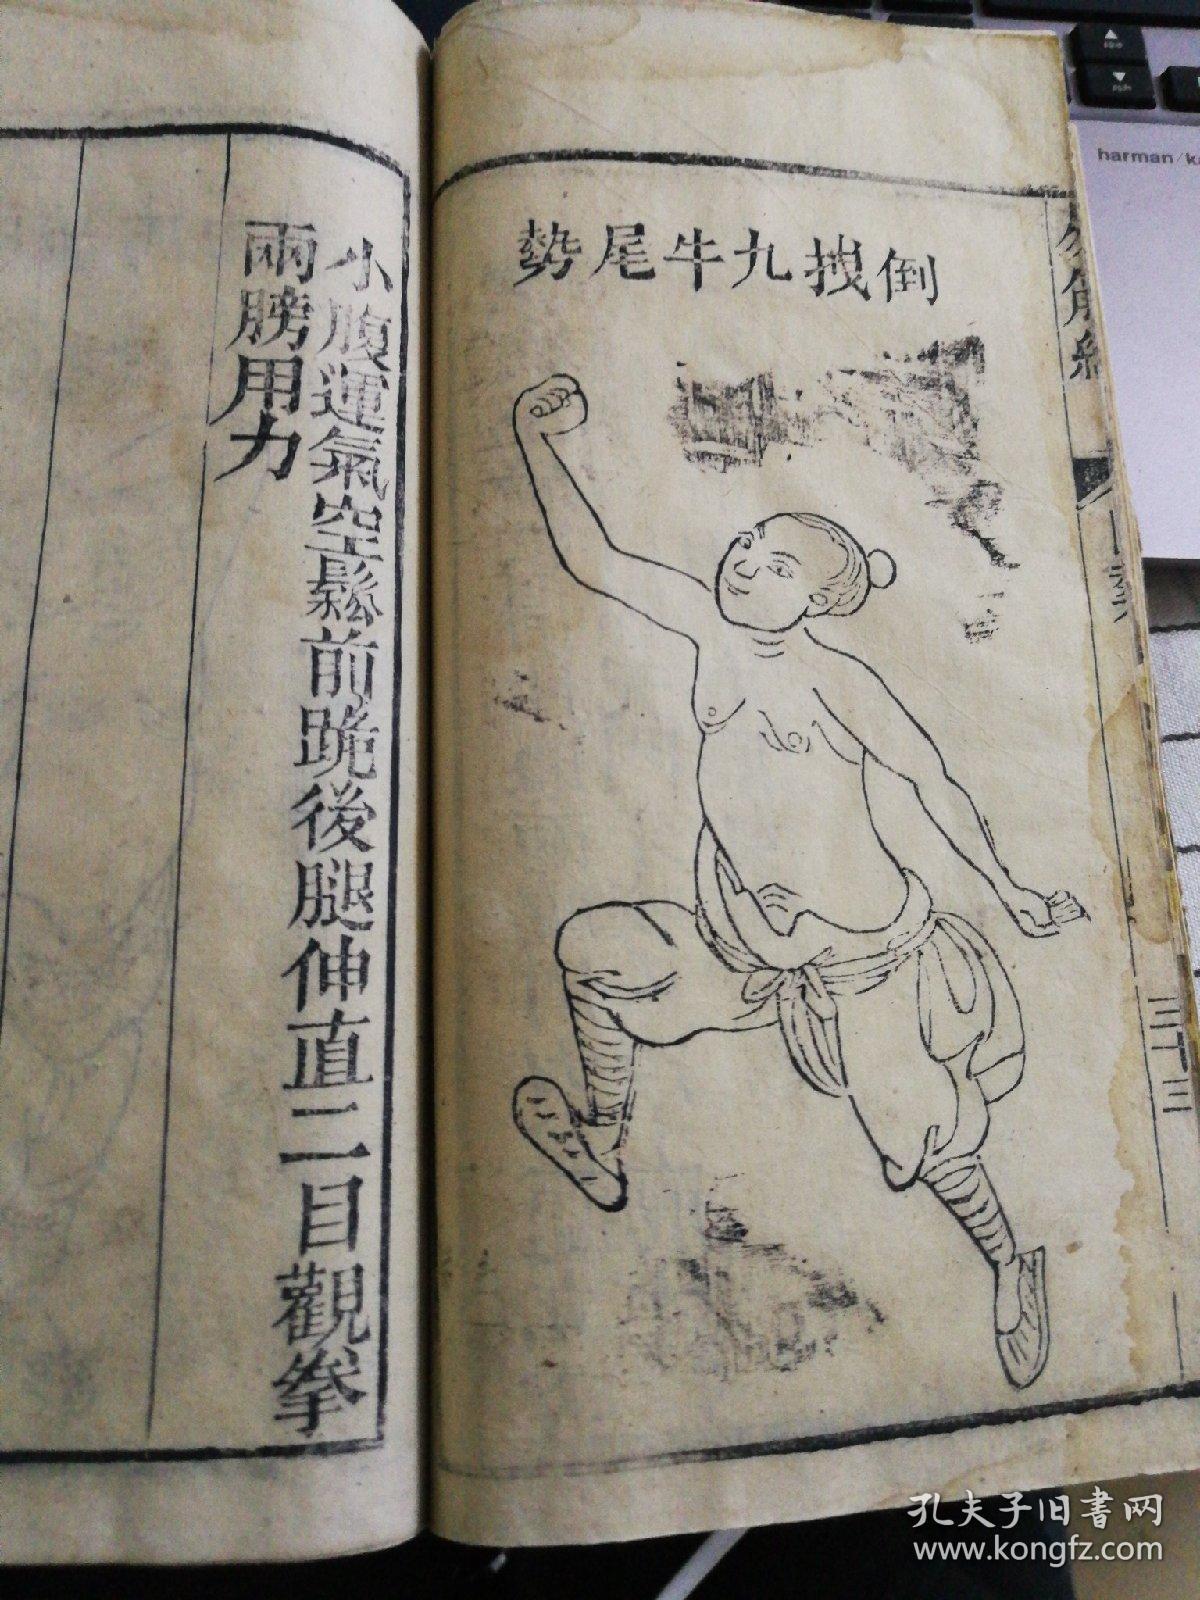 倒拽九牛尾勢
小腹運氣空鬆前跪後腿伸直二目觀拳
兩膀用力
三十三
harman/k
孔夫子旧書网
www.kongfz.com